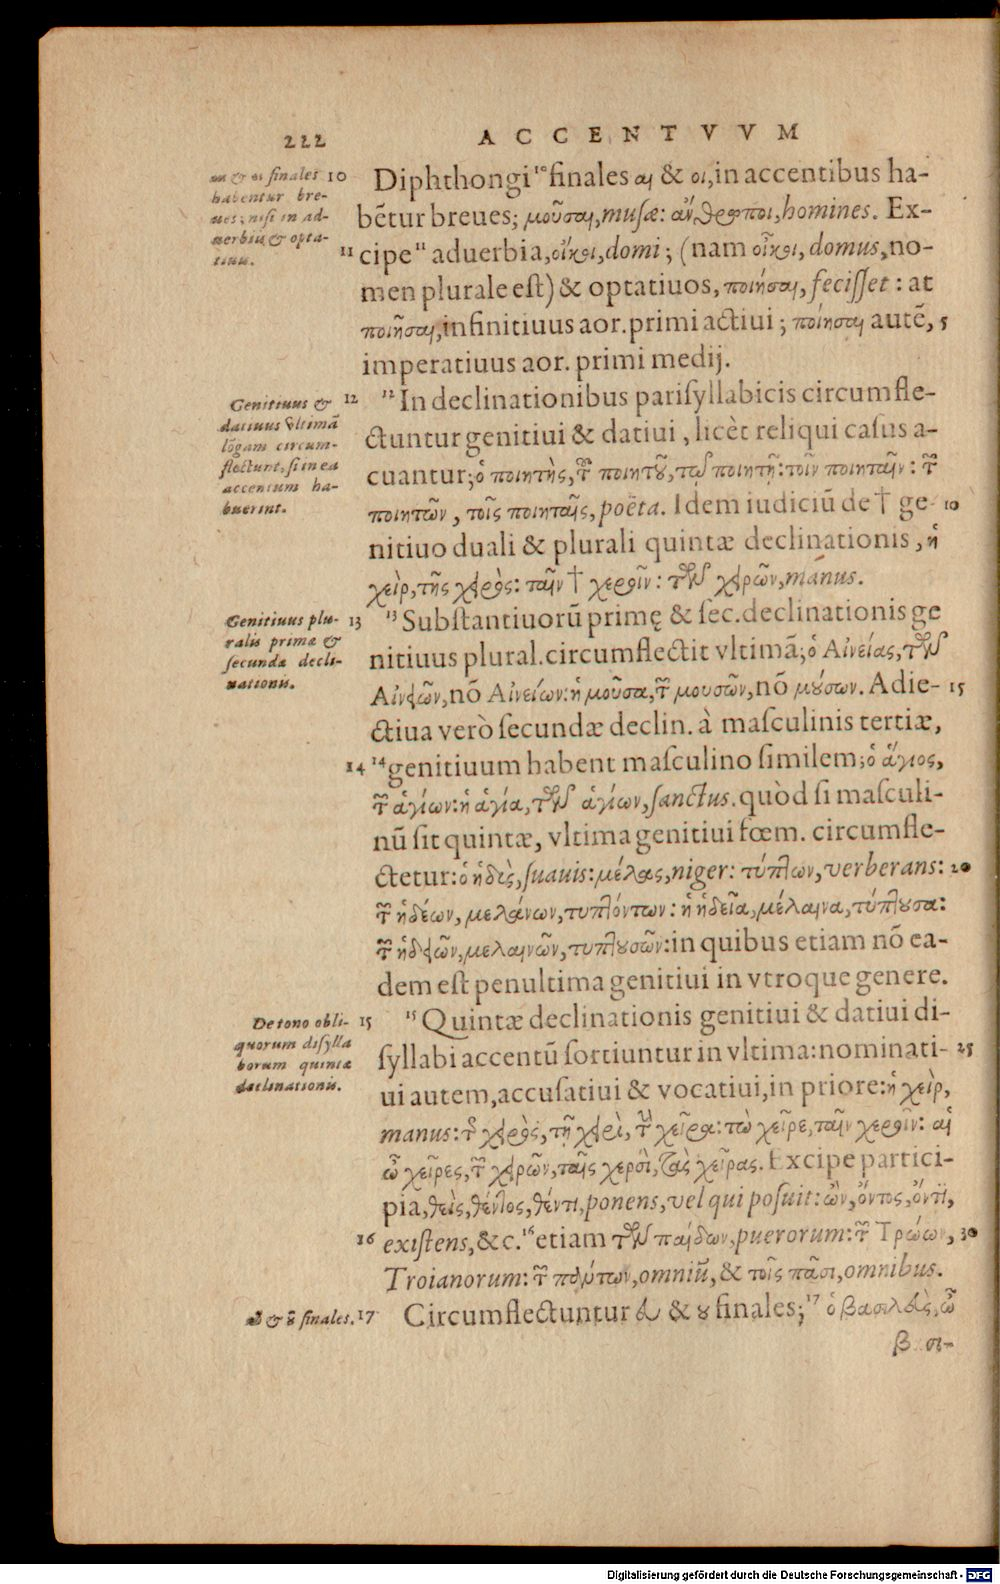 222
ACCENTVVM
αι & οι finales 10
habentur bre-
ues; nisi in ad-
uerbiis, & opta-
tiuis.
Diphthongi ¹⁰finales αι & οι, in accentibus ha-
bētur breues; μοῦσαι, musæ: ἄνθρωποι, homines. Ex-
11 cipe ¹¹ aduerbia, οἴκοι, domi; (nam οἶκοι, domus, no-
men plurale est) & optatiuos, ποιήσαι, fecisset: at
ποιῆσαι, infinitiuus aor. primi actiui; ποίησαι autē, 5
imperatiuus aor. primi medij.
Genitiuus & 12
datiuus vltimā
lōgam circum-
flectunt, si in ea
accentum ha-
buerint.
¹²In declinationibus parisyllabicis circumfle-
ctuntur genitiui & datiui, licèt reliqui casus a-
cuantur; ὁ ποιητὴς, τοῦ ποιητοῦ, τῷ ποιητῇ: τοῖν ποιηταῖν: τῶν
ποιητῶν, τοῖς ποιηταῖς, poëta. Idem iudiciū de † ge- 10
nitiuo duali & plurali quintæ declinationis, ἡ
χεὶρ, τῆς χειρός: ταῖν † χεροῖν: τῶν χειρῶν, manus.
Genitiuus plu- 13
ralis primæ &
secundæ decli-
nationis.
¹³Substantiuorū primę & sec. declinationis ge
nitiuus plural. circumflectit vltimā; ὁ Αἰνείας, τῶν
Αἰνειῶν, nō Αἰνείων: ἡ μοῦσα, τῶν μουσῶν, nō μούσων. Adie- 15
ctiua verò secundæ declin. à masculinis tertiæ,
14 ¹⁴genitiuum habent masculino similem; ὁ ἅγιος,
τῶν ἁγίων: ἡ ἁγία, τῶν ἁγίων, sanctus. quòd si masculi-
nū sit quintæ, vltima genitiui fœm. circumfle-
ctetur: ὁ ἡδὺς, suauis: μέλας, niger: τύπτων, verberans: 20
τῶν ἡδέων, μελάνων, τυπτόντων: ἡ ἡδεῖα, μέλαινα, τύπτουσα:
τῶν ἡδειῶν, μελαινῶν, τυπτουσῶν: in quibus etiam nō ea-
dem est penultima genitiui in vtroque genere.
De tono obli- 15
quorum disylla
borum quintæ
declinationis.
¹⁵Quintæ declinationis genitiui & datiui di-
syllabi accentū sortiuntur in vltima: nominati- 25
ui autem, accusatiui & vocatiui, in priore: ἡ χεὶρ,
manus: τῆς χειρὸς, τῇ χειρὶ, τὴν χεῖρα: τὼ χεῖρε, ταῖν χεροῖν: αἱ
ὦ χεῖρες, τῶν χειρῶν, ταῖς χερσὶ, τὰς χεῖρας. Excipe partici-
pia, θεὶς, θέντος, θέντι, ponens, vel qui posuit: ὢν, ὄντος, ὄντι,
16 existens, &c. ¹⁶etiam τῶν παίδων, puerorum: τῶν Τρώων, 30
Troianorum: τῶν πάντων, omniū, & τοῖς πᾶσι, omnibus.
εῦ & οῦ finales. 17
Circumflectuntur ευ & ου finales; ¹⁷ ὁ βασιλεὺς, ὦ
β σι-
Digitalisierung gefördert durch die Deutsche Forschungsgemeinschaft - DFG